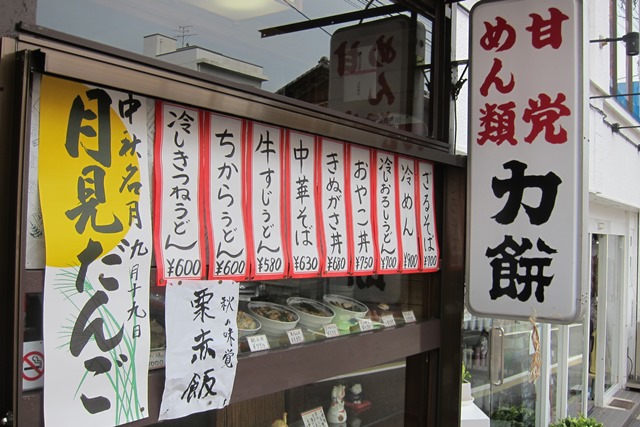 甘党
めん類
力餅
中秋名月 九月十九日
月見だんご
冷しきつねうどん
¥600
ちからうどん
¥600
牛すじうどん
¥580
中華そば
¥630
きぬがさ丼
¥680
おやこ丼
¥750
冷しおろしうどん
¥700
冷めん
¥900
ざるそば
¥700
秋の味覚
栗赤飯